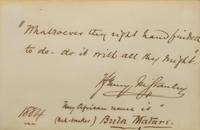 "Whatsoever thy right hand findeth
to do - do it with all thy might"
Henry M Stanley
My African name is "
1884 (Rock-breaker) Bula Matari.